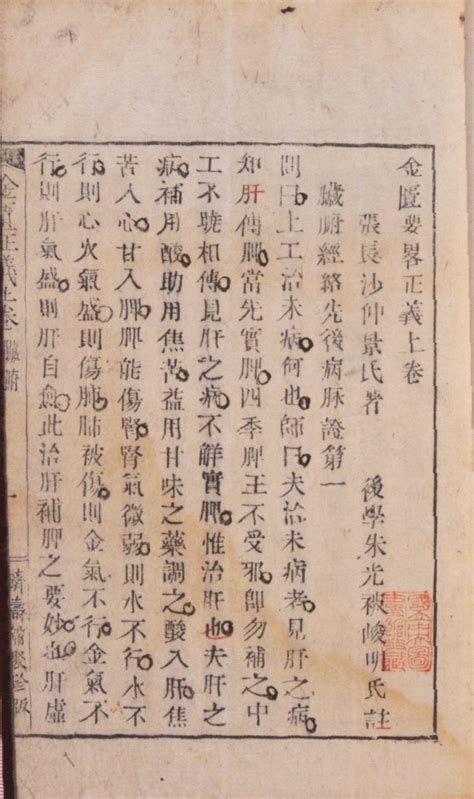 金匱要畧正義上卷
張長沙仲景氏著　後學朱光被峻明氏註
臟腑經絡先後病脉證第一
問曰上工治未病何也師曰夫治未病者見肝之病
知肝傳脾當先實脾四季脾王不受邪卽勿補之中
工不曉相傳見肝之病不觧實脾惟治肝也夫肝之
病補用酸助用焦苦益用甘味之藥調之酸入肝焦
苦入心甘入脾脾能傷腎腎氣微弱則水不行水不
行則心火氣盛則傷肺肺被傷則金氣不行金氣不
行則肝氣盛則肝自愈此治肝補脾之要妙也肝虛
金匱正義上卷　臟腑　一